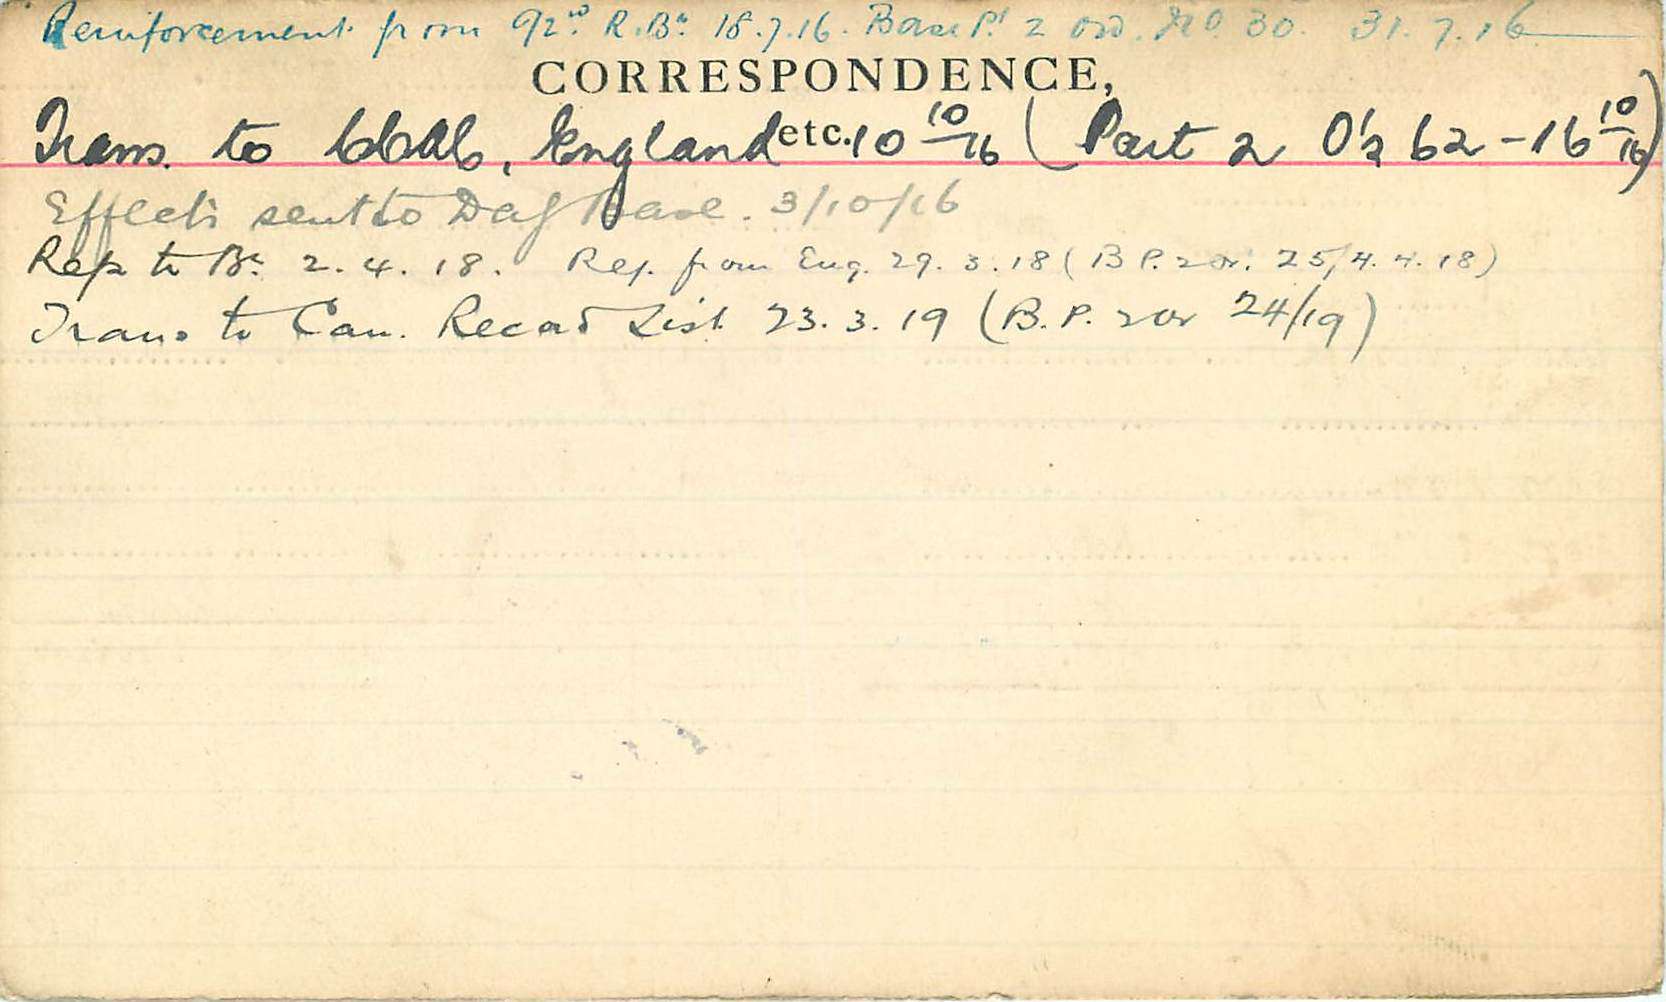 Reinforcement from 92nd R. Bn 18.7.16. Base Pt 2 ord. No. 30. 31.7.16
CORRESPONDENCE,
etc.
Trans. to CCAC, England 10 10/16 (Part 2 O's 62 - 16 10/16)
Effects sent to Base. 3/10/16
Rep to Bn. 2.4.18. Rep. from Eng. 29.3.18 (B P. 2 or. 25/4.4.18)
Trans to Can. Record List 23.3.19 (B.P. 2 or 24/19)